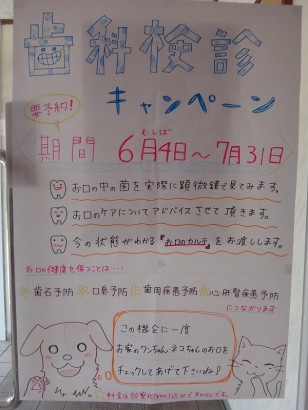 歯科検診
キャンペーン
要予約!
期間 6月4日〜7月31日
むしば
お口の中の菌を実際に顕微鏡で見てみます。
お口のケアについてアドバイスさせて頂きます。
今の状態がわかる『お口のカルテ』をお渡しします。
お口の健康を保つことは・・・
歯石予防 口臭予防 歯周疾患予防 心肝腎疾患予防
につながります
この機会に一度
お家のワンちゃん、ネコちゃんのお口を
チェックしてあげて下さいね!